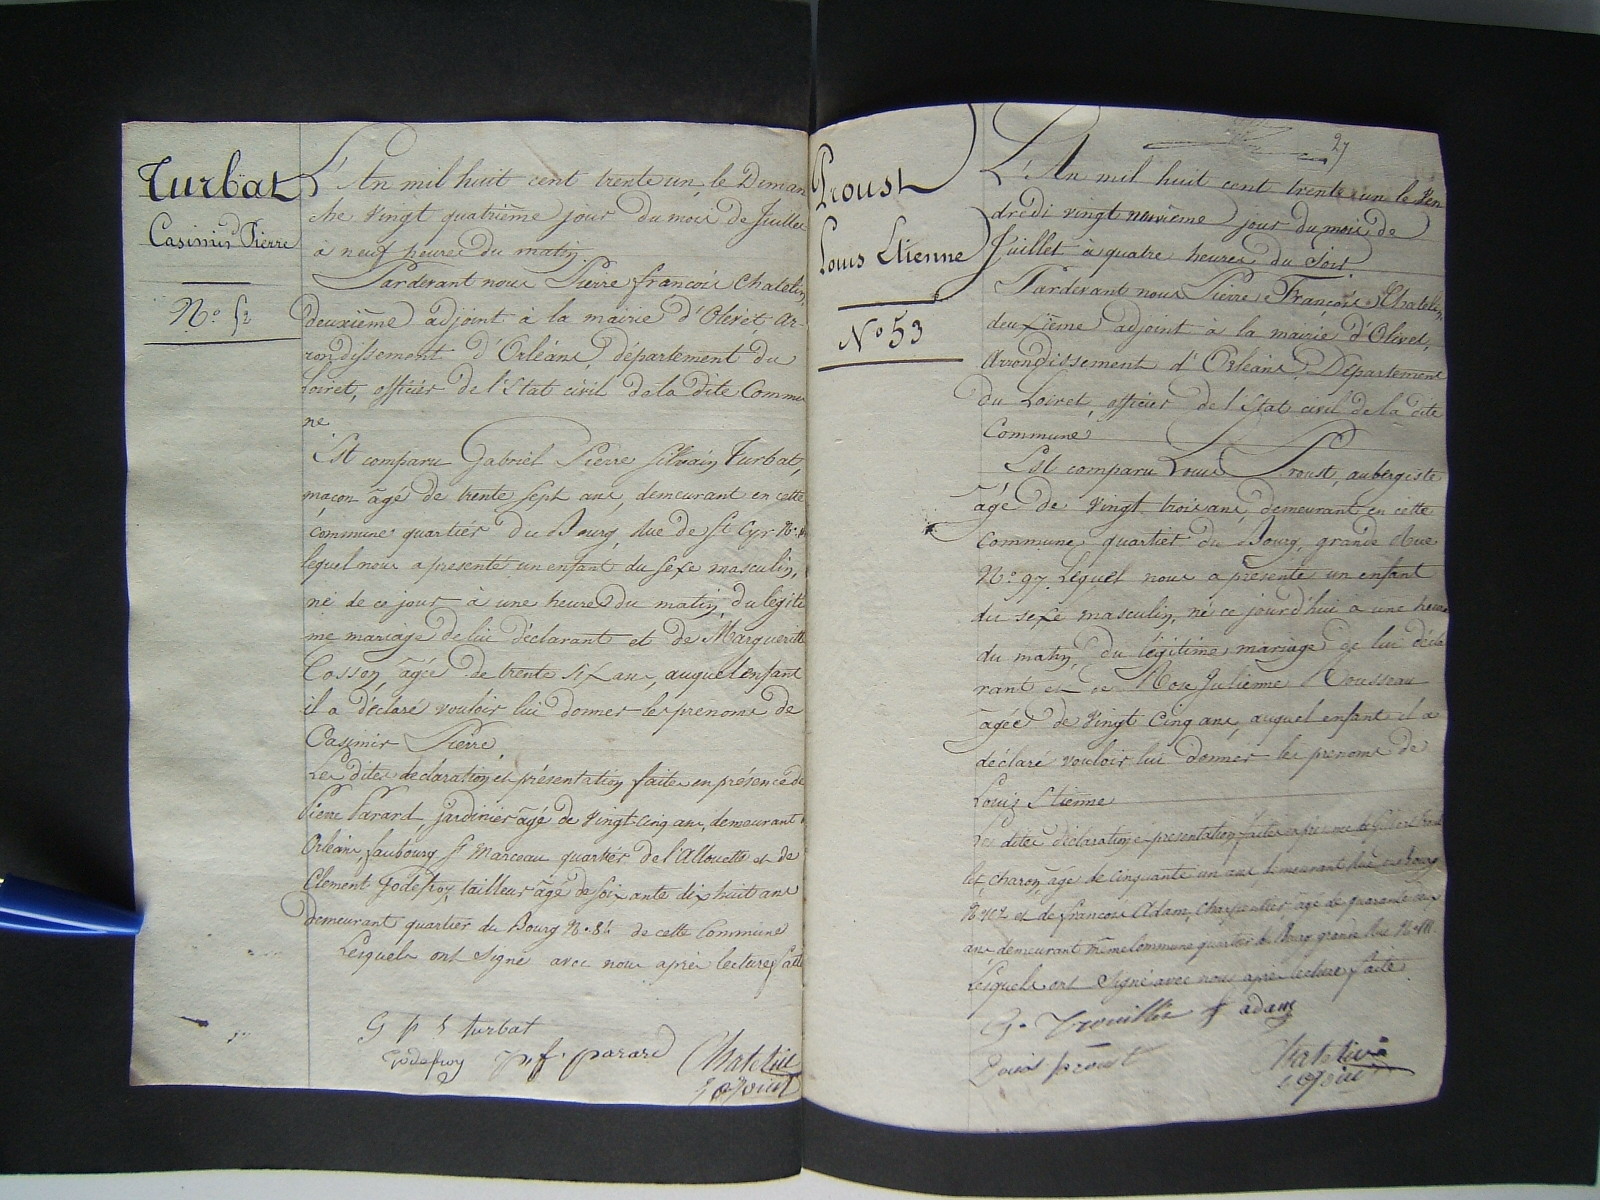 Turbat
Casimir Pierre
N.° 52
L'An mil huit cent trente un, le Diman
che vingt quatrième jour du mois de Juillet
à neuf heures du matin.
Pardevant nous Pierre françois Chatelin,
deuxième adjoint à la mairie d'Olivet ar-
rondissement d'Orléans, département du
Loiret, officier de l'Etat civil de la dite Commu
ne
Est comparu Gabriel Pierre Silvain Turbat,
maçon âgé de trente sept ans, demeurant en cette
commune quartier du Bourg, Rue de St Cyr N.°
lequel nous a présenté un enfant du sexe masculin,
né de ce jour à une heure du matin, du légiti
me mariage de lui déclarant et de Marguerite
Cosson, âgée de trente six ans, auquel enfant
il a déclaré vouloir lui donner les prenoms de
Casimir Pierre.
Les dites declaration et présentation faites en présence de
Pierre Parard, jardinier âgé de vingt-cinq ans, demeurant
Orléans, faubourg St Marceau quartier de l'Allouette et de
Clement Godefroy, tailleur âgé de soixante dix huit ans
demeurant quartier du Bourg N.° 81 de cette Commune
Lesquels ont signé avec nous après lecture faite
G p S turbat
Godefroy p. f. parard Chatelin
adjoint
27
Proust
Louis Etienne
N.° 53
L'An mil huit cent trente un le Ven
dredi vingt neuvième jour du mois de
Juillet à quatre heures du Soir.
Pardevant nous Pierre François Chatelin,
deuxième adjoint à la mairie d'Olivet,
Arrondissement d'Orléans, Département
du Loiret, officier de l'Etat civil de la dite
Commune
Est comparu Louis Proust, aubergiste
âgé de vingt trois ans, demeurant en cette
Commune, quartier du Bourg, grande Rue
N.° 97. Lequel nous a présenté un enfant
du sexe masculin, né ce jourd'hui a une heure
du matin, du légitime mariage de lui décla
rant et de Rose Julienne Rousseau
agée de vingt cinq ans, auquel enfant il a
déclaré vouloir lui donner les prenoms de
Louis Etienne
Les dites déclaration et présentation faites en présence de
charon, âgé de cinquante un ans, demeurant Rue du bourg
et de françois Adam, Charpentier âgé de quarante
ans demeurant même Commune quartier du Bourg grande Rue
Lesquels ont signé avec nous après lecture faite.
G. Trouillet f adam
Louis proust Chatelin
adjoint